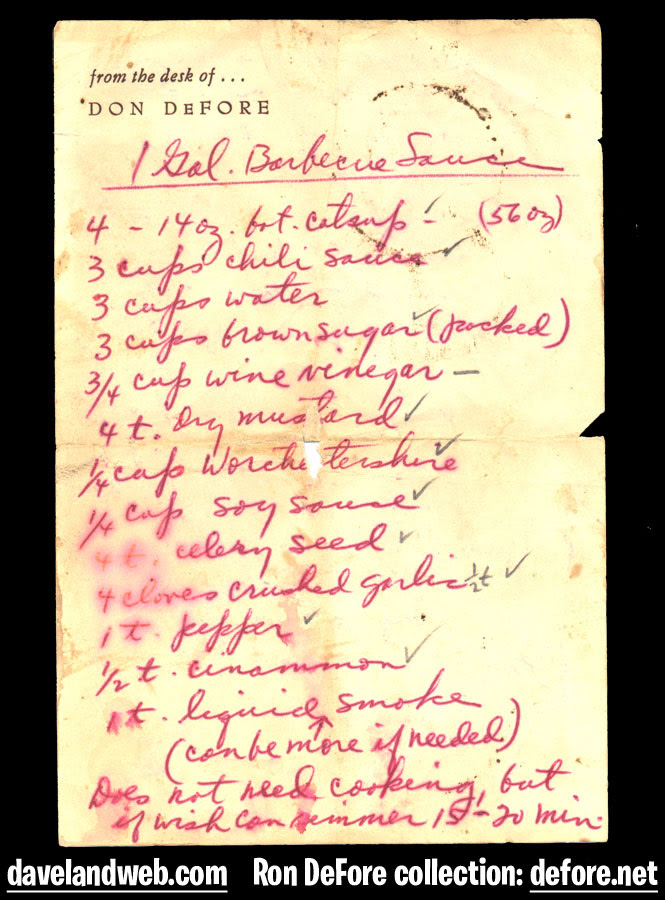 from the desk of . . .
DON DEFORE
1 Gal. Barbecue Sauce
4 - 14 oz. bot. catsup - (56 oz)
3 cups chili sauce
3 cups water
3 cups brown sugar (packed)
3/4 cup wine vinegar
4 t. Dry mustard
1/4 cup Worchestershire
1/4 cup soy sauce
4 t. celery seed
4 cloves crushed garlic 1/2 t
1 t. pepper
1/2 t. cinammon
1 t. liquid smoke
(can be more if needed)
Does not need cooking, but
if wish can simmer 15-20 min.
davelandweb.com Ron DeFore collection: defore.net